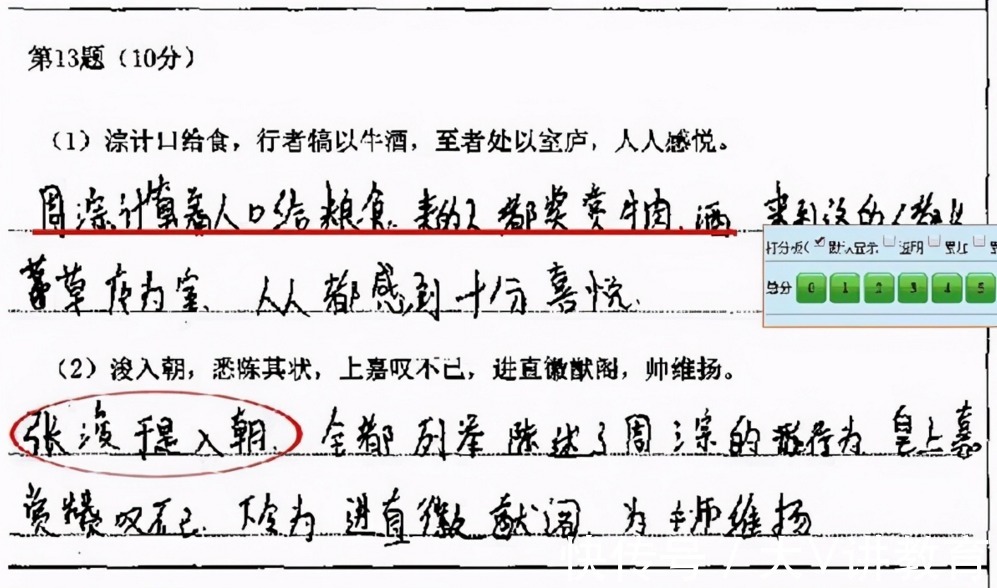 第13题（10分）
（1）淙计口给食，行者犒以牛酒，至者处以室庐，人人感悦。
周淙计算着人口给粮食.来的人都奖赏牛肉.酒 来到这的人都以
打分板( 默认显示 透明 累加
草房为室. 人人都感到十分喜悦.
总分 0 1 2 3 4 5
（2）浚入朝，悉陈其状，上嘉叹不已，进直徽猷阁，帅维扬。
张浚于是入朝. 全都列举陈述了周淙的 行为 皇上嘉
赏 叹不已. 为 进直徽猷阁. 为主帅维扬